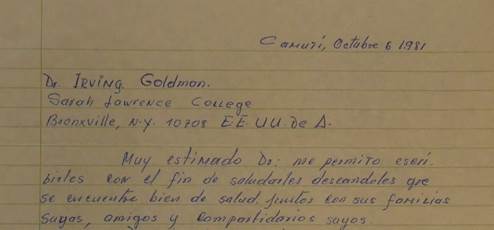 Camuti, Octubre 6 1981
Dr. Irving Goldman.
Sarah Lawrence College
Bronxville, N.Y. 10708 EE.UU. De A.
Muy estimado Dr: me permito escri.
birles con el fin de saludarles deseandoles que
se encuentre bien de salud juntos con sus familias
Suyas, amigos y Compartidarios suyos.